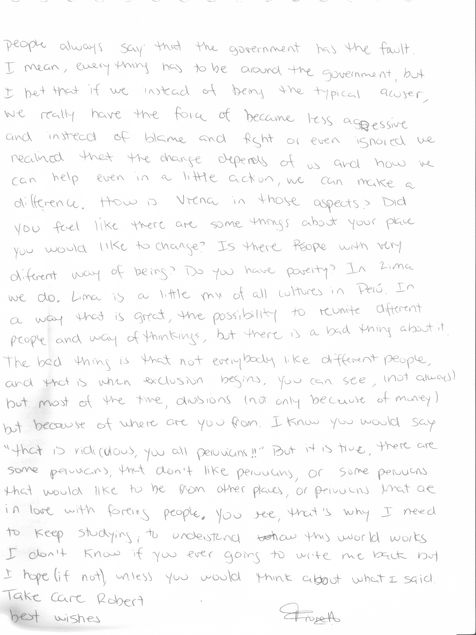 people always say that the government has the fault.
I mean, everything has to be around the government, but
I bet that if we instead of being the typical acuser,
we really have the force of became less aggessive
and instead of blame and fight or even ignored we
realized that the change depends of us and how we
can help even in a little action, we can make a
difference. How is in those aspects? Did
you feel like there are some things about your place
you would like to change? Is there People with very
diferent way of being? Do you have poverty? In Lima
we do. Lima is a little mix of all cultures in Perú. In
a way that is great, the possibility to reunite different
people and way of thinkings, but there is a bad thing about it.
The bad thing is that not everybody like different people,
and that is when exclusion begins, you can see, (not always)
but most of the time, divisions (no only because of money)
but because of where are you from. I know you would say
"that is ridiculous, you all peruvians!!" But it is true, there are
some peruvians, that don't like peruvians, or some peruvians
that would like to be from other places, or peruvians that are
in love with foreing people. You see, that's why I need
to keep studying, to understand how this world works
I don't know if you ever going to write me back but
I hope (if not) unless you would think about what I said.
Take Care Robert
best wishes